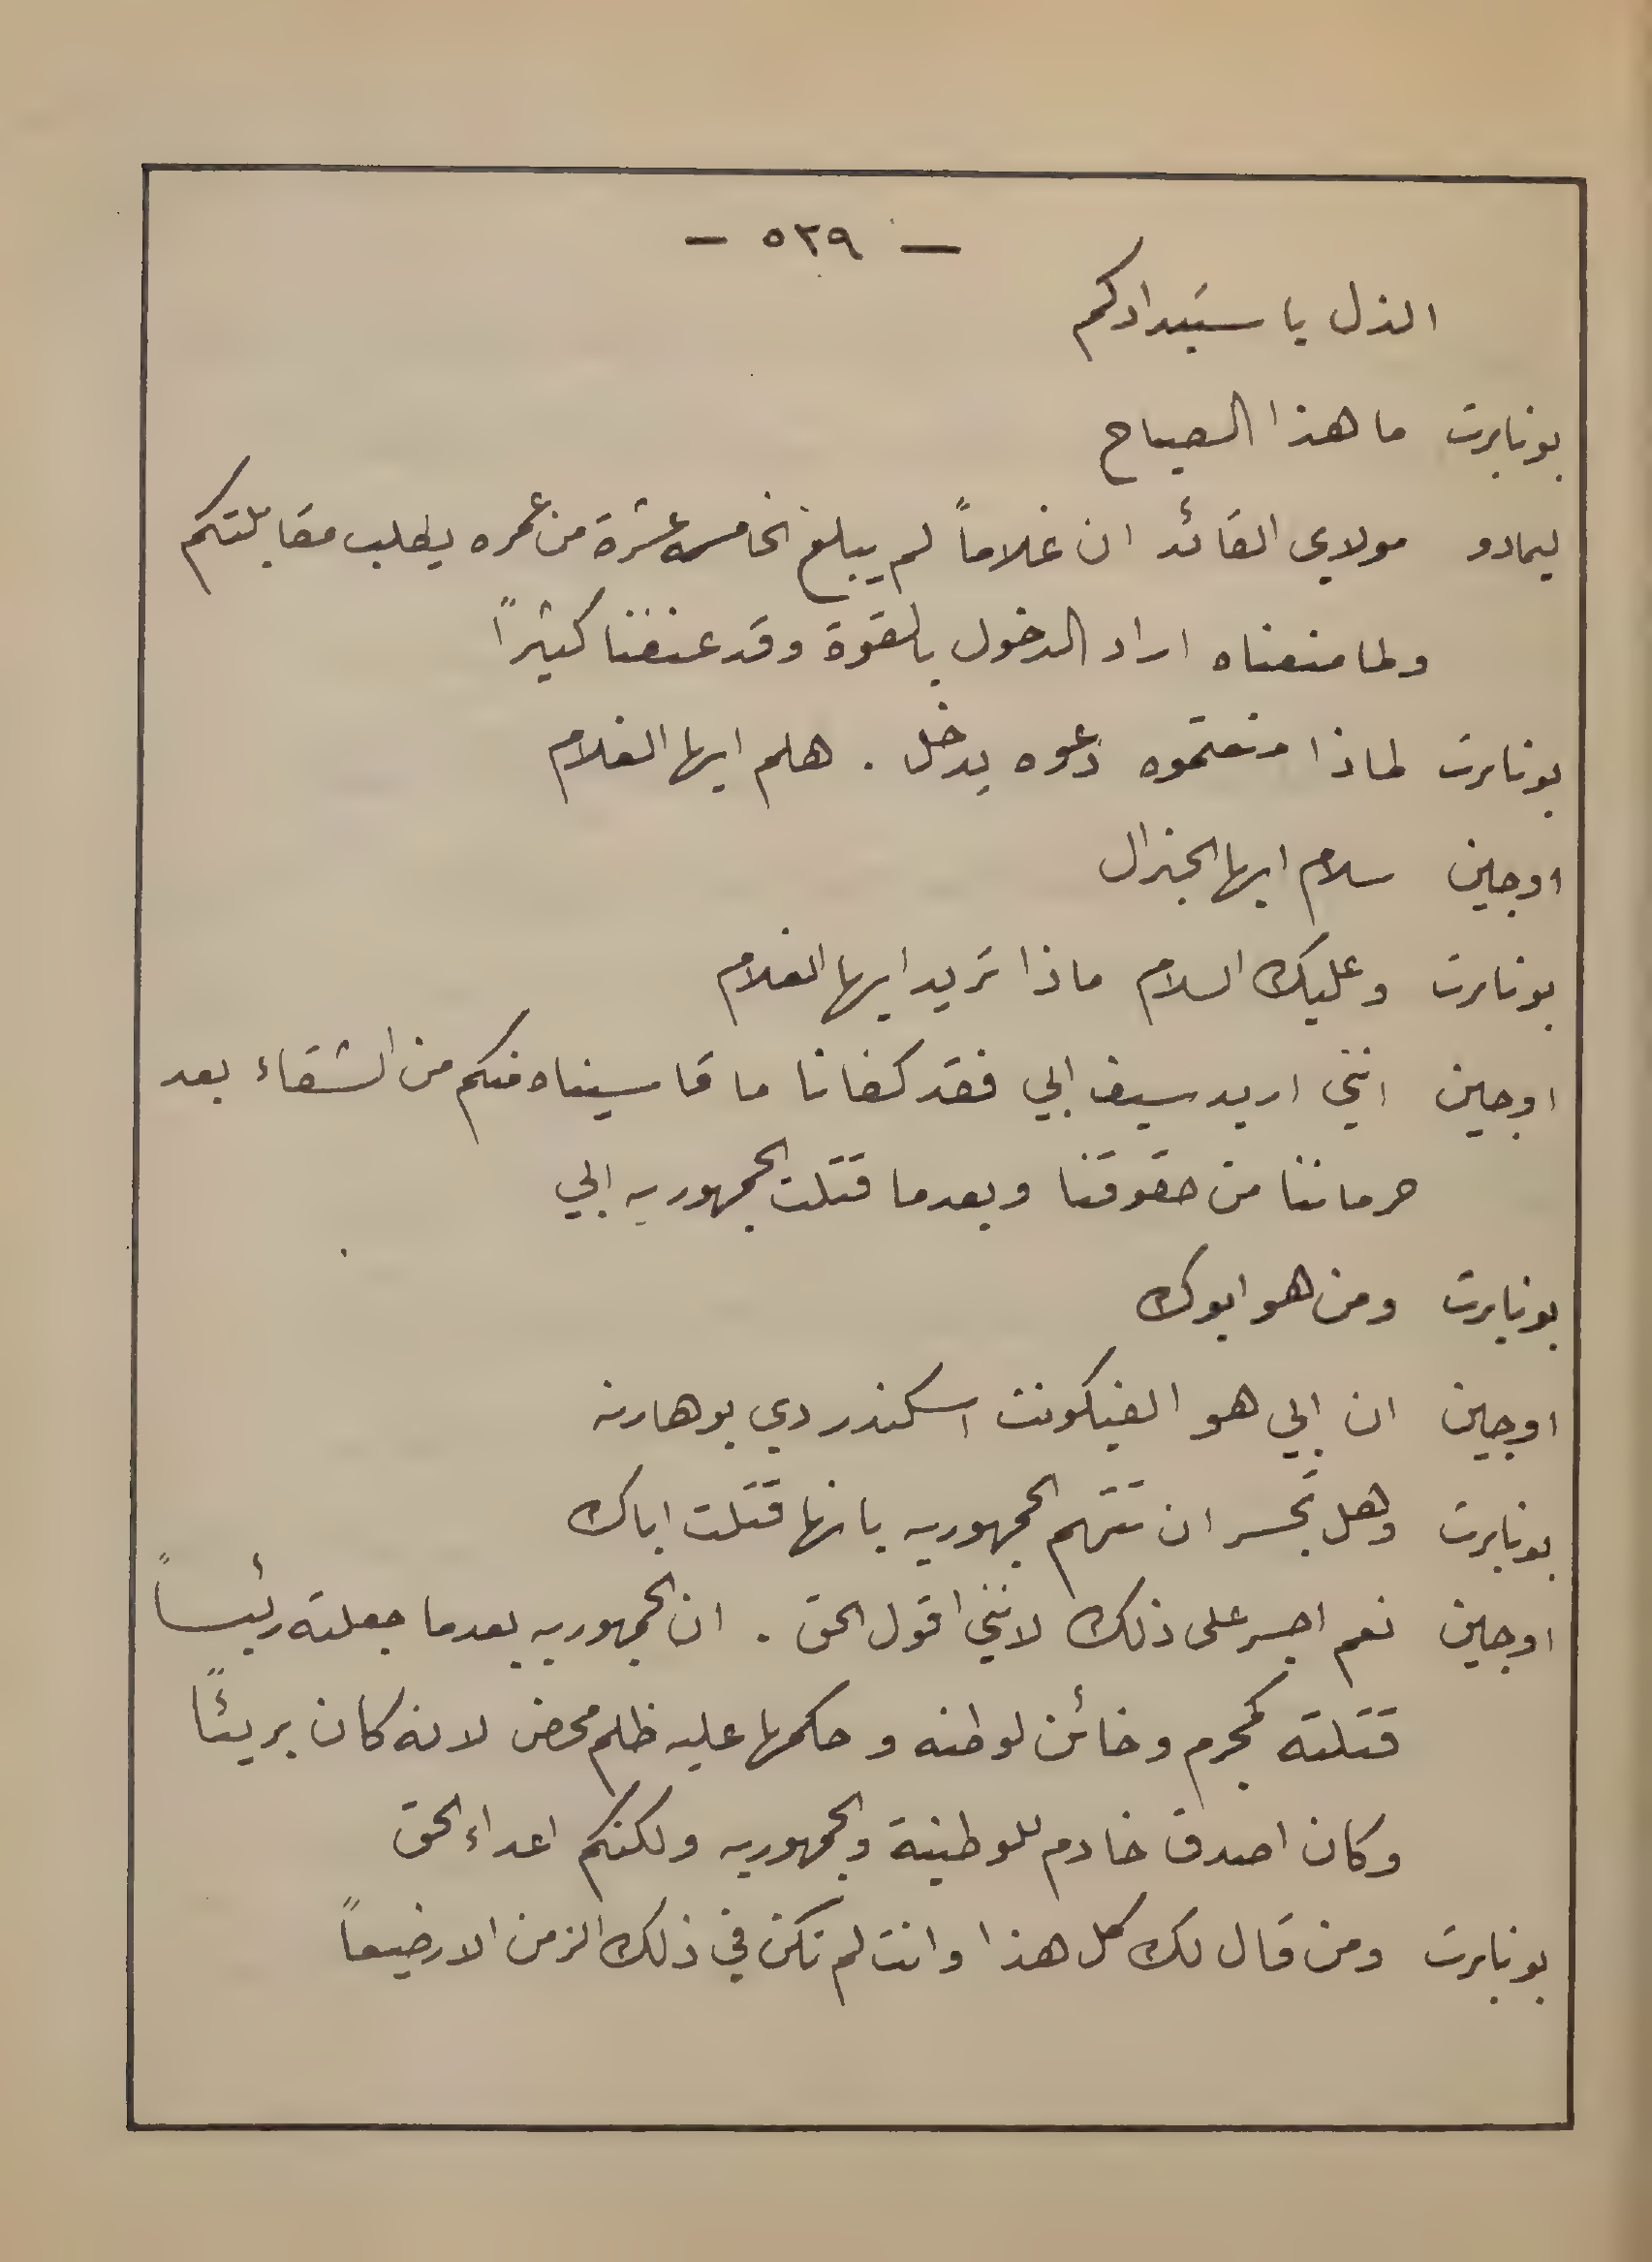 — ٥٢٩ —
الذل باستبدادكم
بونابرت ما هذا الصياح
ليمادو مولاي القائد ان غلاماً لم يبلغ الخامسه عشرة من عمره يطلب مقابلتكم
ولما منعناه اراد الدخول بالقوة وقد عنفنا كثيراً
بونابرت لماذا منعتموه دعوه يدخل . هلم ايها الغلام
اوجين سلام ايها الجنرال
بونابرت وعليك السلام ماذا تريد ايها الغلام
اوجين انني اريد سيف ابي فقد كفانا ما قاسيناه منكم من الشقاء بعد
حرماننا من حقوقنا وبعدما قتلت الجمهوريه ابي
بونابرت ومن هو ابوك
اوجين ان ابي هو الفيكونت اسكندر دي بوهارنه
بونابرت وهل تجسر ان تتهم الجمهوريه بانها قتلت اباك
اوجين نعم اجسر على ذلك لانني اقول الحق . ان الجمهوريه بعدما جعلته رئيساً
قتلته كمجرم وخائن لوطنه وحكمها عليه ظلم محض لانه كان بريئاً
وكان اصدق خادم للوطنية والجمهوريه ولكنكم اعداء الحق
بونابرت ومن قال لك كل هذا وانت لم تكن في ذلك الزمن الا رضيعاً